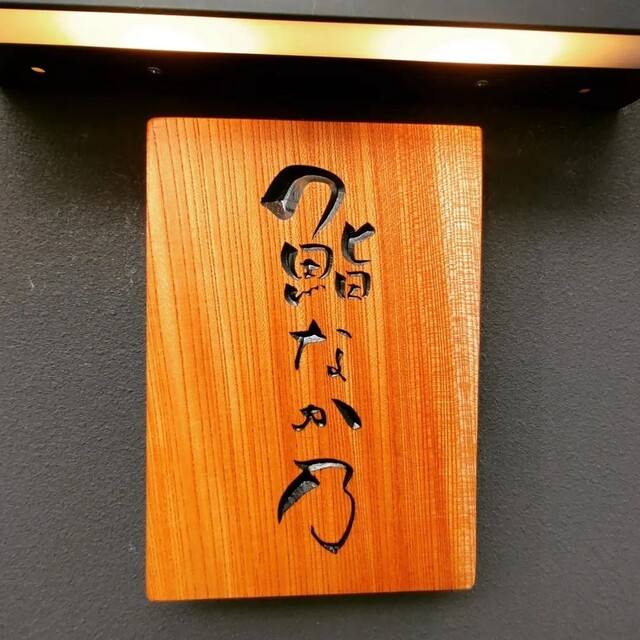 鮨なか乃